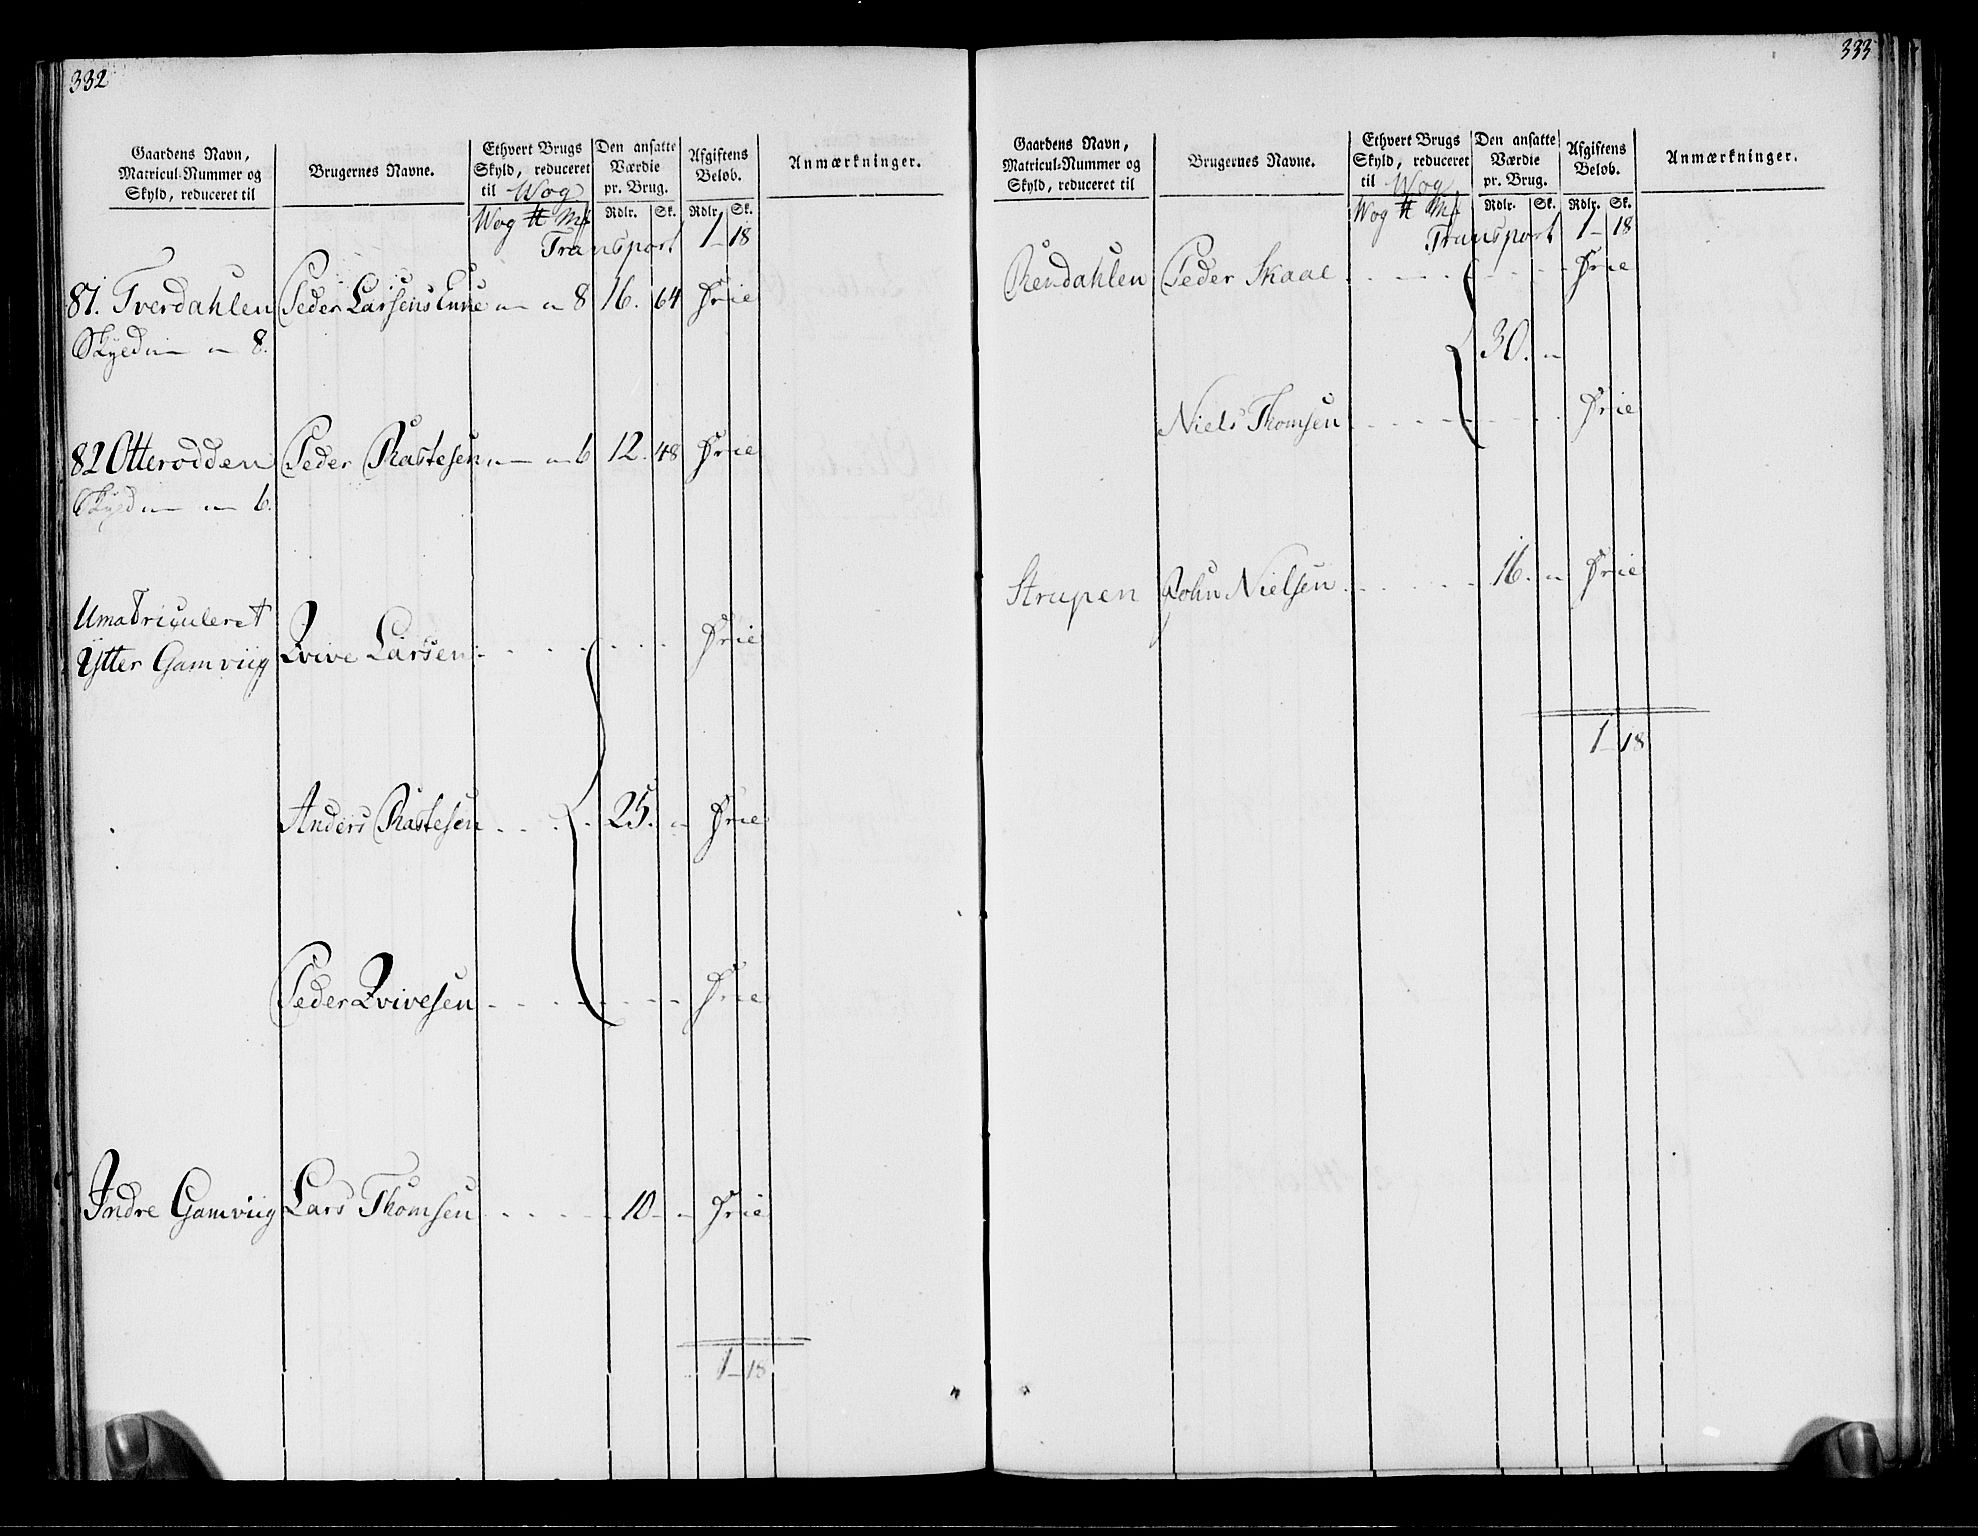 332
Gaardens Navn, Matricul-Nummer og Skyld, reduceret til
Brugernes Navne.
Ethvert Brugs Skyld, reduceret til Wog
Den ansatte Værdie pr. Brug.
Afgiftens Beløb.
Anmærkninger.
Wog ℔ Mk Rdlr. Sk. Rdlr. Sk.
Transport 1 - 18
87. Tverdahlen Peder Larsens Enke " - " 8 16. 64 Frie
Skyld " - " - 8.
82 Otterodden Peder Rastesen " - " 6 12. 48 Frie
Skyld " - " - 6.
Umatriculeret
Ytter Gamviig Qvive Larsen . . . . . Frie
Anders Rastesen . . . . 25. " Frie
Peder Qvivesen . . . . . Frie
Indre Gamviig Lars Thomsen . . . . . 10 - " Frie
1 - 18
333
Gaardens Navn, Matricul-Nummer og Skyld, reduceret til
Brugernes Navne.
Ethvert Brugs Skyld, reduceret til Wog
Den ansatte Værdie pr. Brug.
Afgiftens Beløb.
Anmærkninger.
Wog ℔ Mk Rdlr. Sk. Rdlr. Sk.
Transport 1 - 18
Rendahlen Peder Skaal . . . . . Frie
30. "
Niels Thomsen . . . . . Frie
Strupen John Nielsen . . . . . 16. " Frie
1 - 18